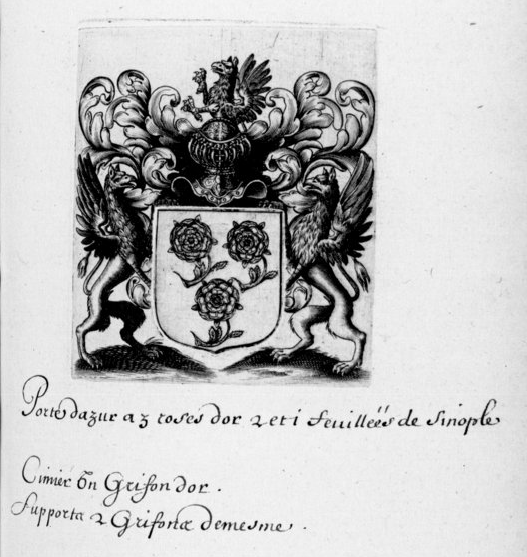 Porte dazur a 3 roses dor 2 et i feuilleës de Sinople
Cimier Un Grifon dor .
Supporta 2 Grifona demesme .